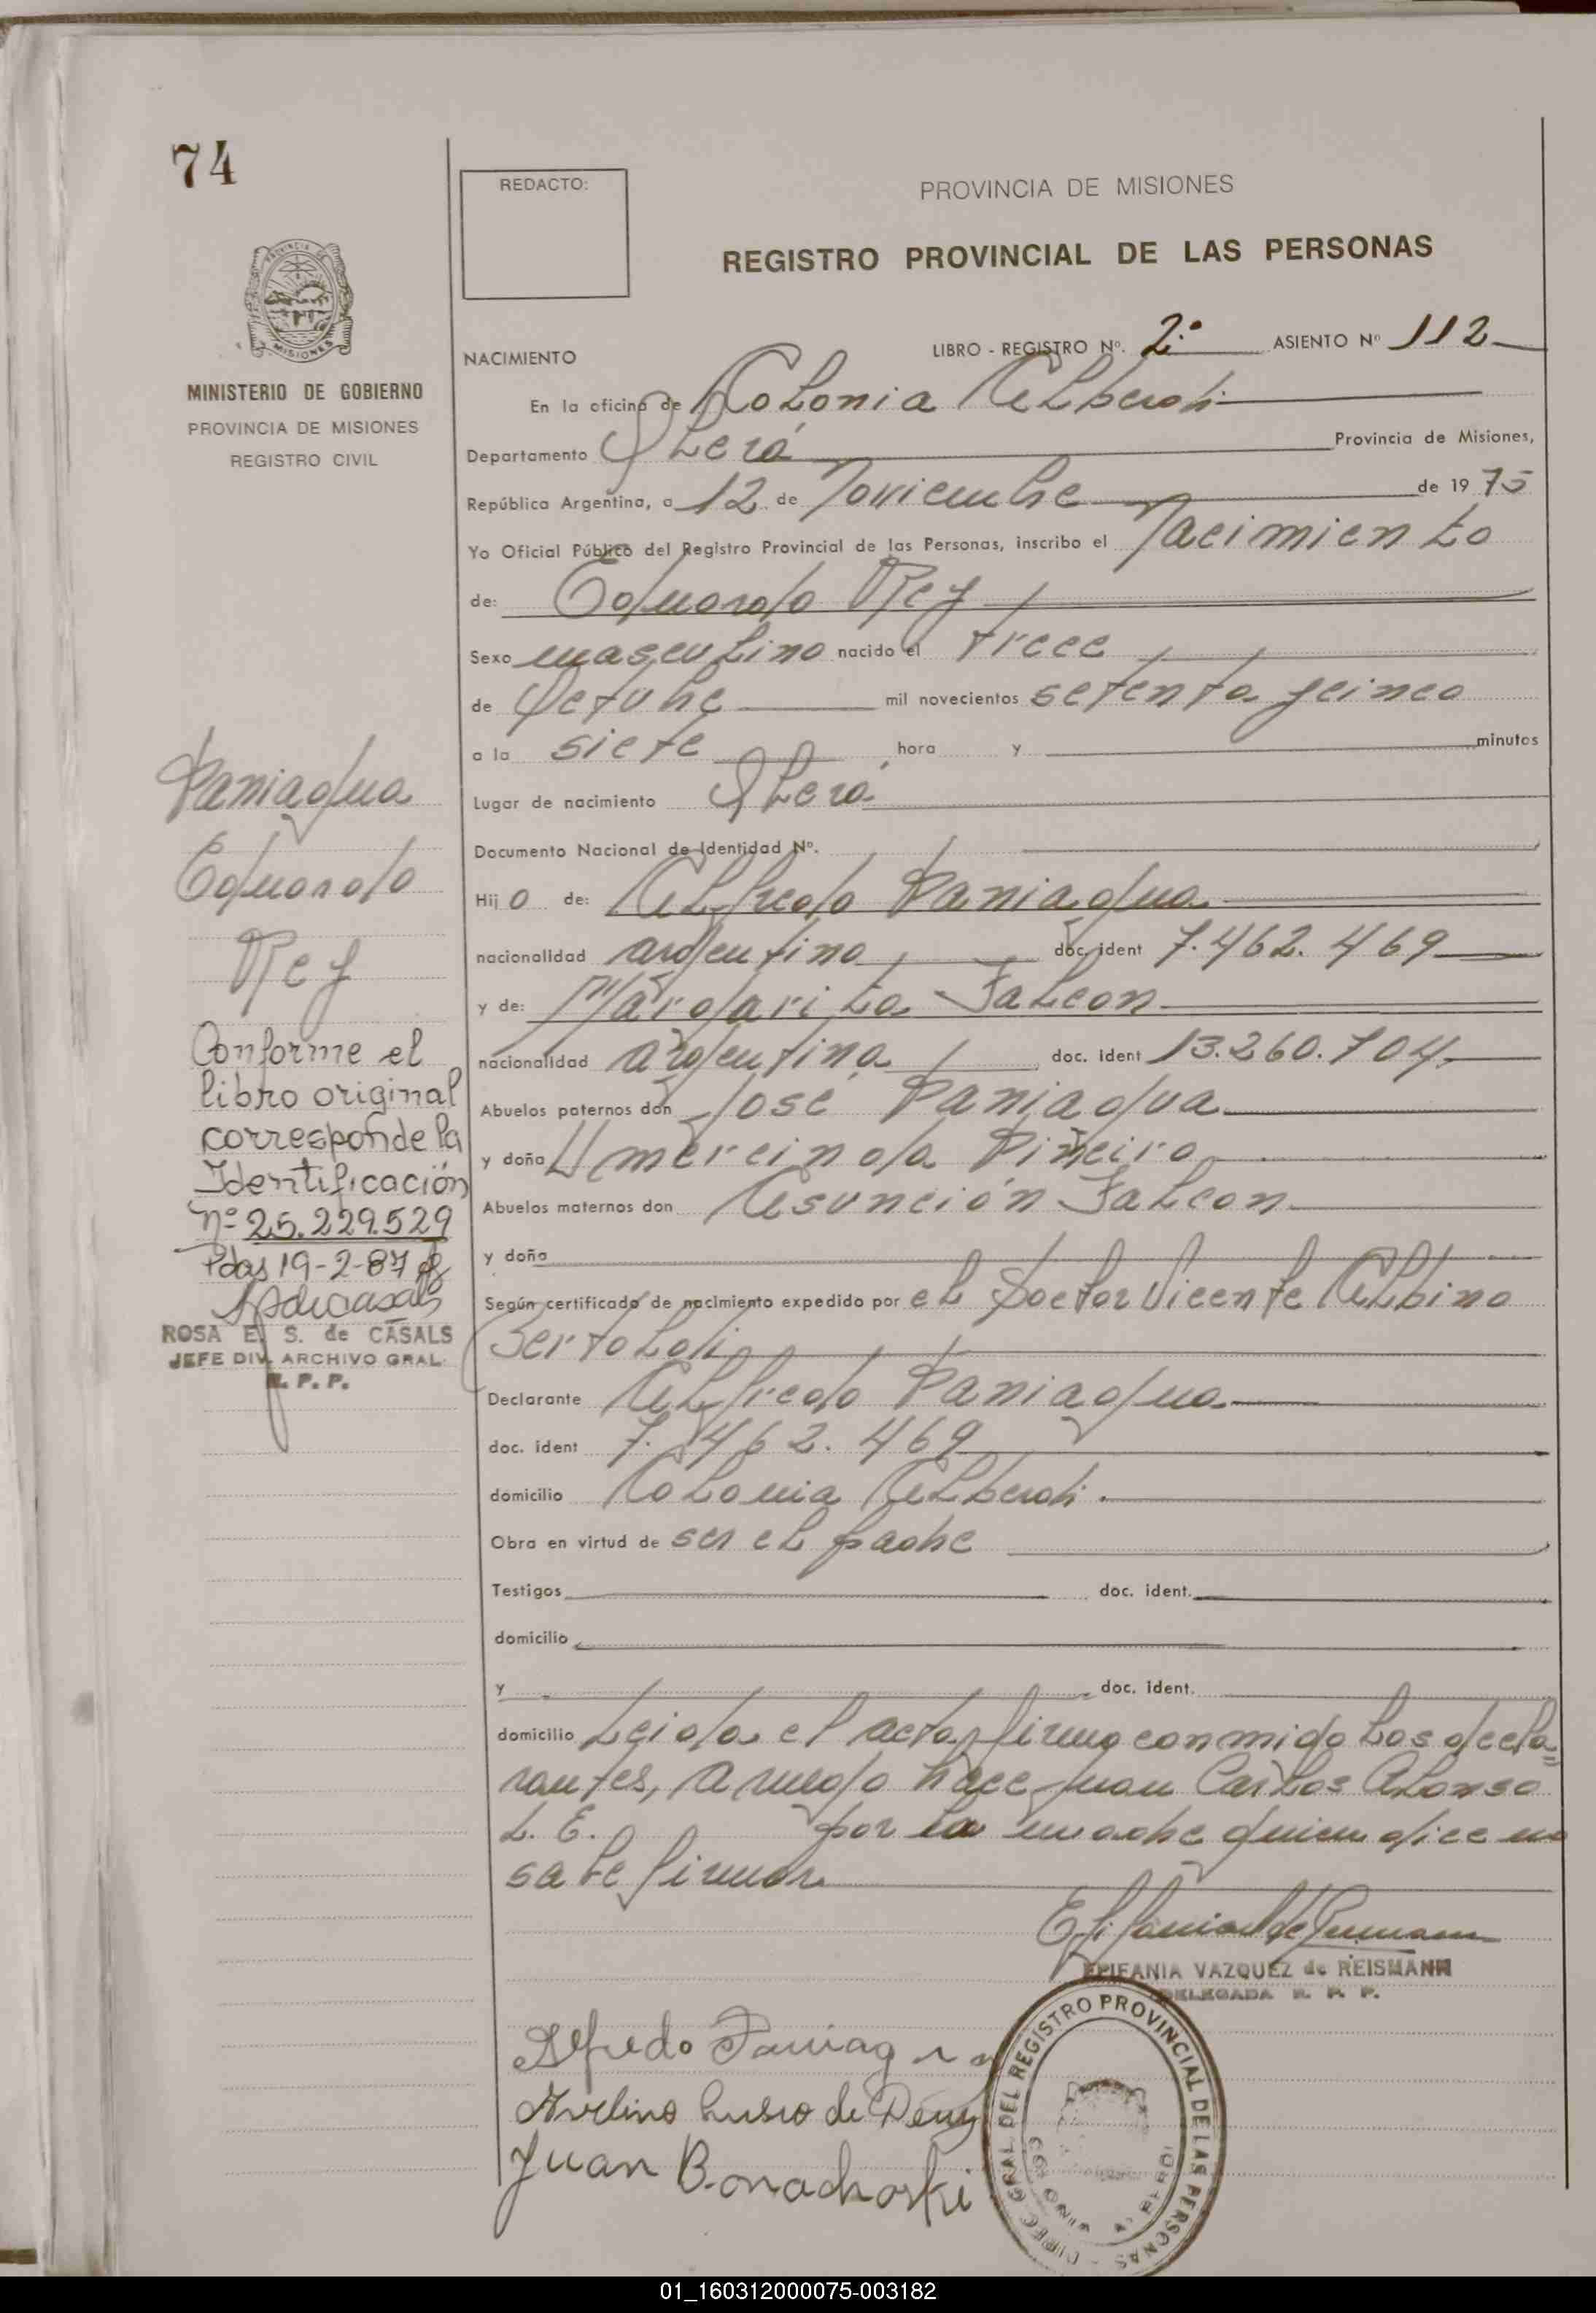 74
REDACTO:
PROVINCIA DE MISIONES
REGISTRO PROVINCIAL DE LAS PERSONAS
PROVINCIA DE
MISIONES
MINISTERIO DE GOBIERNO
PROVINCIA DE MISIONES
REGISTRO CIVIL
NACIMIENTO
LIBRO - REGISTRO Nº. 2º ASIENTO Nº 112
En la oficina de Colonia Alberdi
Departamento Oberá Provincia de Misiones,
República Argentina, a 12 de Noviembre de 1975
Yo Oficial Público del Registro Provincial de las Personas, inscribo el Nacimiento
de: Eduardo Rey
Sexo masculino nacido el trece
de Octubre mil novecientos setenta y cinco
a la siete hora y minutos
Lugar de nacimiento Oberá
Documento Nacional de Identidad Nº.
Hijo de: Alfredo Paniagua
nacionalidad argentino doc. ident 7.462.469
y de: Margarita Falcon
nacionalidad argentina doc. ident 13.260.704
Abuelos paternos don José Paniagua
y doña Umercinda Piñeiro
Abuelos maternos don Asunción Falcon
y doña
Según certificado de nacimiento expedido por el Doctor Vicente Albino
Bertoldi
Declarante Alfredo Paniagua
doc. ident 7.462.469
domicilio Colonia Alberdi.
Obra en virtud de ser el padre
Testigos doc. ident.
domicilio
y doc. ident.
domicilio Leida el acta, firma conmigo los decla=
rantes, A ruego hace Juan Carlos Alonso
L. E. por la madre quien dice no
sabe firmar
Paniagua
Eduardo
Rey
Conforme el
libro original
corresponde la
Identificación
Nº 25.229.529
Pdas 19-2-87
ROSA E. S. de CASALS
JEFE DIV. ARCHIVO GRAL.
R. P. P.
EPIFANIA VAZQUEZ de REISMANN
DELEGADA R. P. P.
Alfredo Paniagua
Avelino
Juan Bonachoski
DIREC. GRAL. DEL REGISTRO PROVINCIAL DE LAS PERSONAS
COLONIA ALBERDI
01_160312000075-003182